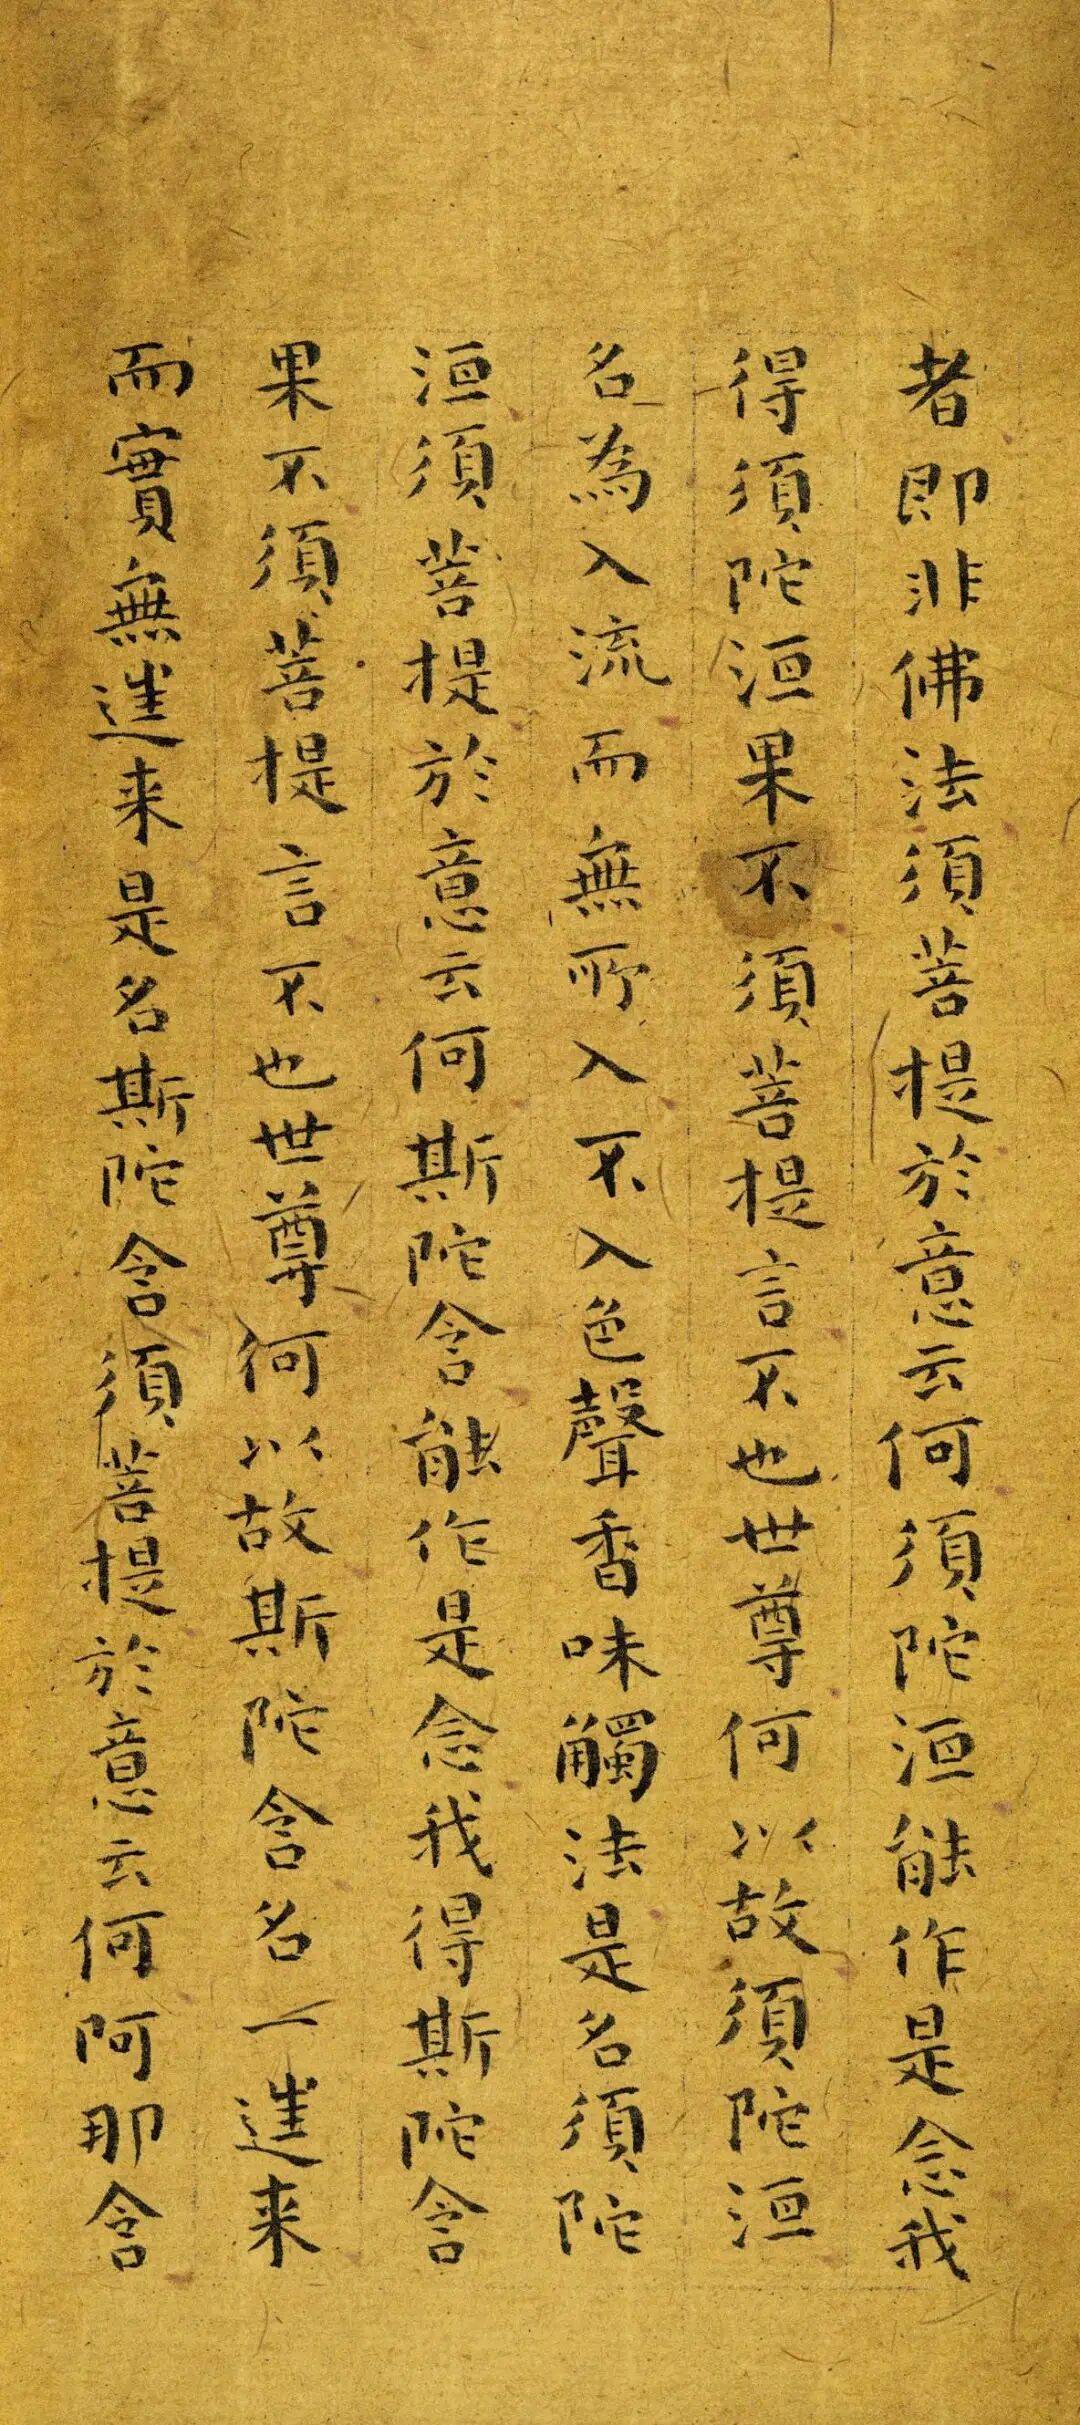 者即非佛法須菩提於意云何須陀洹能作是念我
得須陀洹果不須菩提言不也世尊何以故須陀洹
名為入流而無所入不入色聲香味觸法是名須陀
洹須菩提於意云何斯陀含能作是念我得斯陀含
果不須菩提言不也世尊何以故斯陀含名一逬来
而實無逬来是名斯陀含須菩提於意云何阿那含